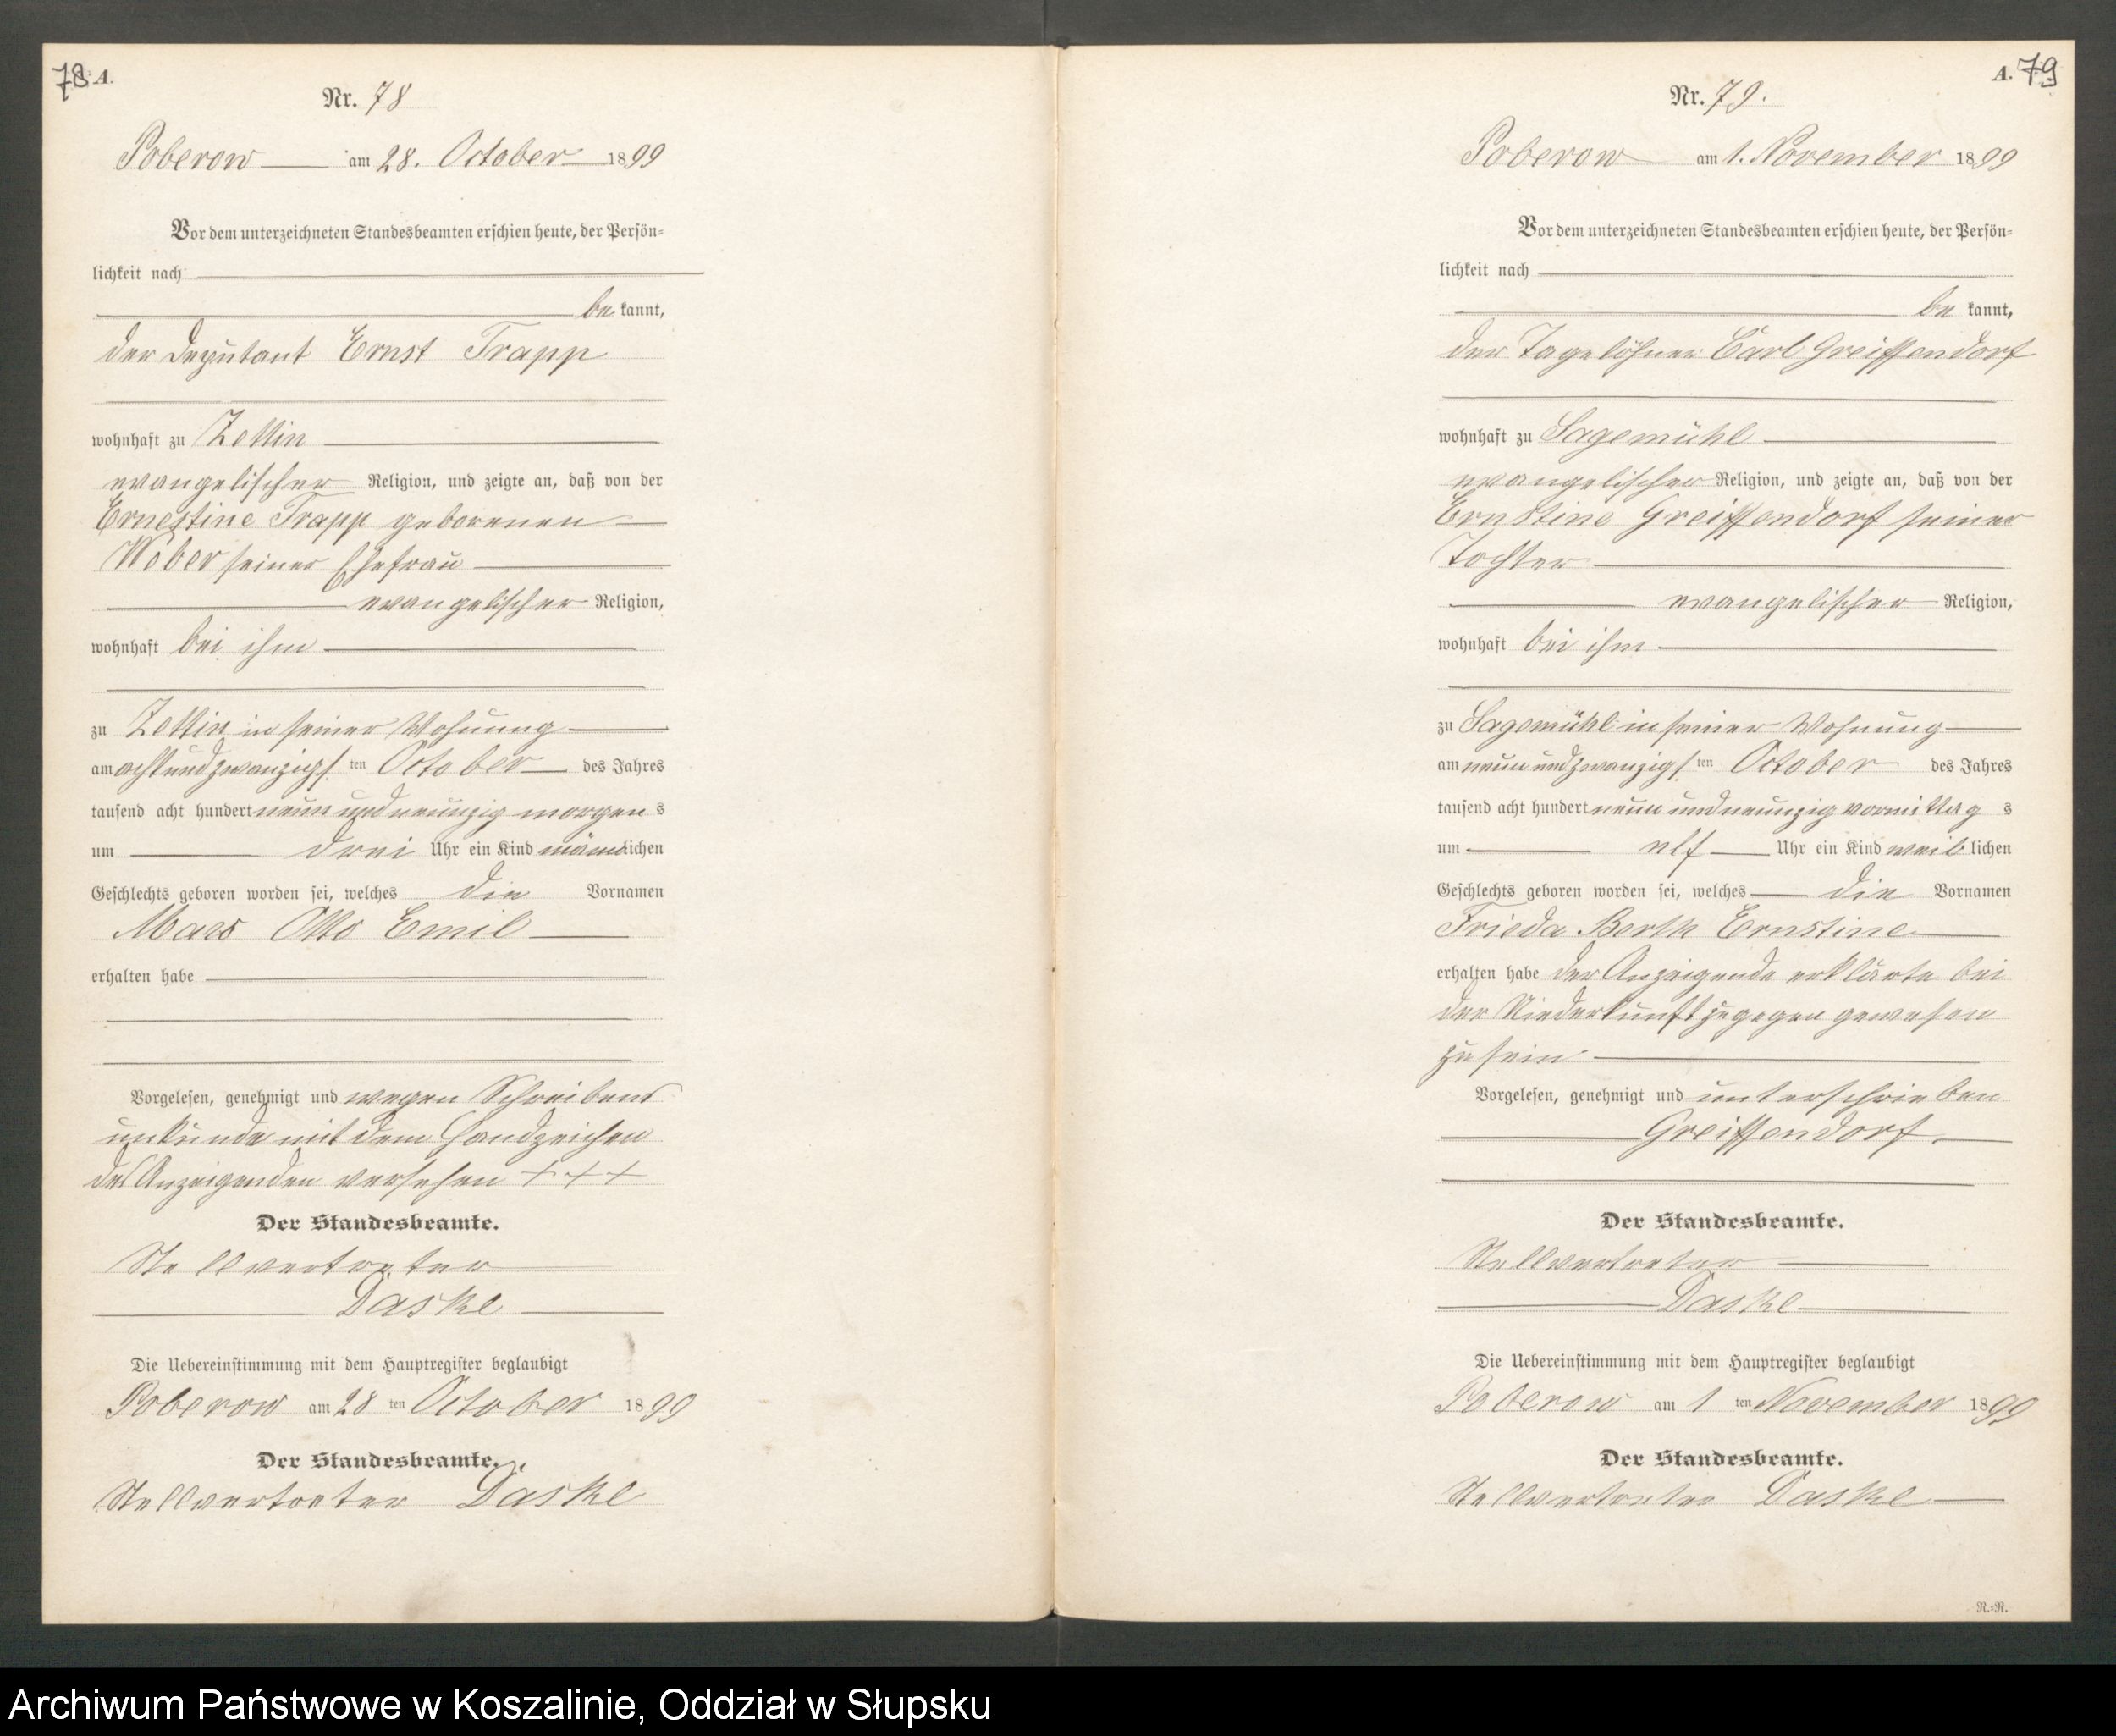 78 A.
Nr. 78
Poberow am 28. October 1899
Vor dem unterzeichneten Standesbeamten erschien heute, der Persön=
lichkeit nach
be kannt,
der Deputant Ernst Trapp
wohnhaft zu Zettin
evangelischer Religion, und zeigte an, daß von der
Ernestine Trapp geborenen
Weber seiner Ehefrau
evangelischer Religion,
wohnhaft bei ihm
zu Zettin in seiner Wohnung
am achtundzwanzigs ten October des Jahres
tausend acht hundert neun und neunzig morgen s
um drei Uhr ein Kind männlichen
Geschlechts geboren worden sei, welches die Vornamen
Otto Emil
erhalten habe
Vorgelesen, genehmigt und wegen Schreibens
unkunde mit dem Handzeichen
des Anzeigenden versehen + + +
Der Standesbeamte.
Stellvertreter
Daske
Die Uebereinstimmung mit dem Hauptregister beglaubigt
Poberow am 28 ten October 1899
Der Standesbeamte.
Stellvertreter Daske
A. 79
Nr. 79.
Poberow am 1. November 1899
Vor dem unterzeichneten Standesbeamten erschien heute, der Persön=
lichkeit nach
be kannt,
der Tagelöhner Carl Greiffendorf
wohnhaft zu Sagemühl
evangelischer Religion, und zeigte an, daß von der
Ernstine Greiffendorf seiner
Tochter
evangelischer Religion,
wohnhaft bei ihm
zu Sagemühl in seiner Wohnung
am neun und zwanzigs ten October des Jahres
tausend acht hundert neun und neunzig vormittag s
um elf Uhr ein Kind weib lichen
Geschlechts geboren worden sei, welches die Vornamen
Frieda Ernstine
erhalten habe der Anzeigende erklärte bei
der Niederkunft zugegen gewesen
zu sein
Vorgelesen, genehmigt und unterschrieben
Greiffendorf.
Der Standesbeamte.
Stellvertreter
Daske
Die Uebereinstimmung mit dem Hauptregister beglaubigt
Poberow am 1 ten November 1899
Der Standesbeamte.
Stellvertreter Daske
R.=R.
Archiwum Państwowe w Koszalinie, Oddział w Słupsku